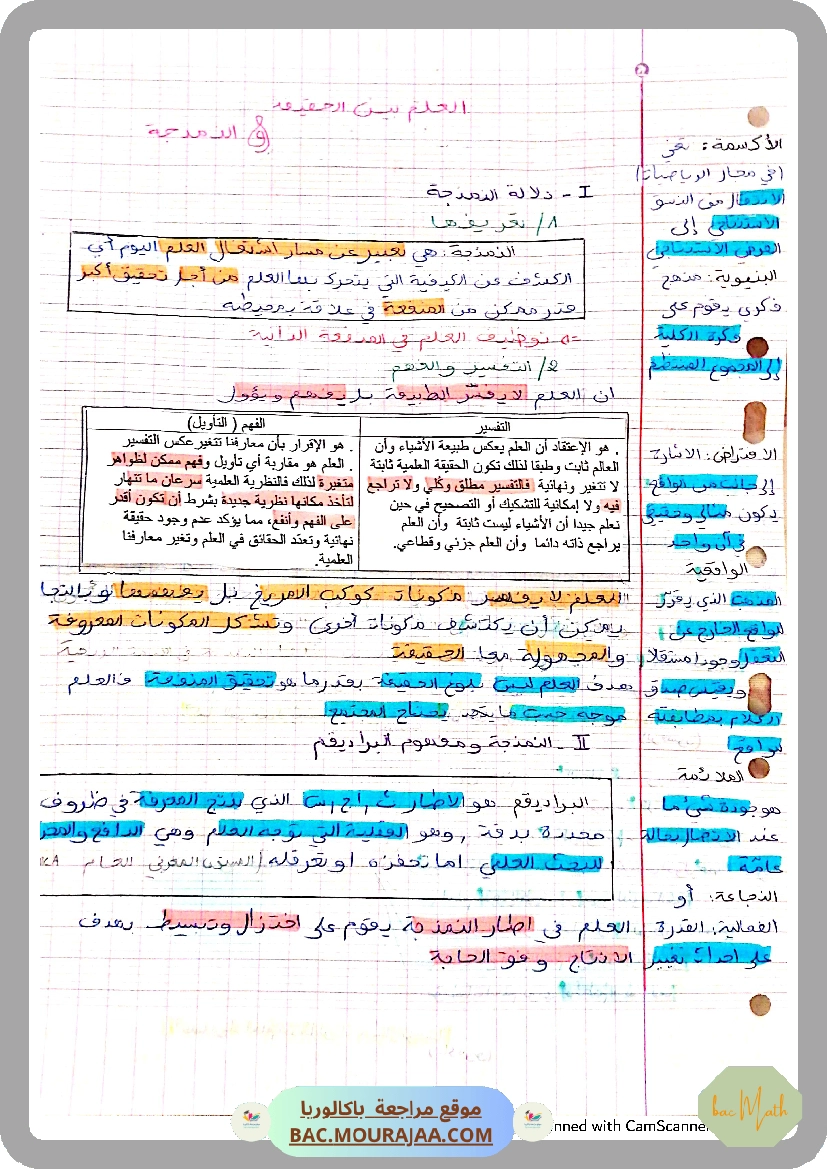 العلم بين الحقيقة
و النمذجة
I - دلالة النمذجة
1/ تعريفها
النمذجة: هي تعبير عن مسار اشتغال العلم اليوم أي
الكشف عن الكيفية التي يتحرك بها العلم من أجل تحقيق أكبر
قدر ممكن من المنفعة في علاقة بمحيطه
=> توظيف العلم في المنفعة الذاتية
2/ التفسير والفهم
ان العلم لا يفسّر الطبيعة بل يفهم و يؤول
التفسير
. هو الإعتقاد أن العلم يعكس طبيعة الأشياء وأن
العالم ثابت وطبقا لذلك تكون الحقيقة العلمية ثابتة
لا تتغير ونهائية فالتفسير مطلق وكلّي ولا تراجع
فيه ولا إمكانية للتشكيك أو التصحيح في حين
نعلم جيدا أن الأشياء ليست ثابتة وأن العلم
يراجع ذاته دائما وأن العلم جزئي وقطاعي.
الفهم ( التأويل)
. هو الإقرار بأن معارفنا تتغير عكس التفسير
. العلم هو مقاربة أي تأويل وفهم ممكن لظواهر
متغيرة لذلك فالنظرية العلمية سرعان ما تنهار
لتأخذ مكانها نظرية جديدة بشرط أن تكون أقدر
على الفهم وأنفع، مما يؤكد عدم وجود حقيقة
نهائية وتعتد الحقائق في العلم وتغير معارفنا
العلمية.
العلم لا يفسر مكونات كوكب المريخ بل يفهمها
يمكن أن يكتشف مكونات أخرى وتشكل المكونات المعروفة
والمجهولة معا الحقيقة
هدف العلم ليس بلوغ الحقيقة بقدر ما هو تحقيق المنفعة فالعلم
موجه حسب ما يحتاج المجتمع
II - النمذجة ومفهوم البراديقم
البراديقم هو الاطار ث, إج, س الذي ينتج المعرفة في ظروف
محددة بدقة , وهو العقلية التي توجه العلم وهي الدافع
للبحث العلمي اما تحفزه او تعرقله
العلم في اطار النمذجة يقوم على اختزال وتبسيط بهدف
الانتاج وفق الحاجة
الأكسمة: تعني
(في مجال الرياضيات)
الانتقال من النسق
الاستنتاجي إلى
الفرضي الاستنتاجي
البنيوية: منهج
فكري يقوم على
فكرة الكلية
إلى المجموع المنتظم
الافتراض: الاشارة
إلى جانب من الواقع
يكون مثالي وحقيقي
في آن واحد
الواقعية
المذهب الذي يقرّ
للواقع الخارج عن
العقل وجودا مستقلا
ويقيس صدق
الكلام بمطابقته
للواقع
الملائمة
هو جودة شيء ما
عند الاتصال بحالة
عامّة
النجاعة: أو
الفعالية: القدرة
على احداث تغيير
موقع مراجعة باكالوريا
BAC.MOURAJAA.COM
nned with CamScanner
bac Math